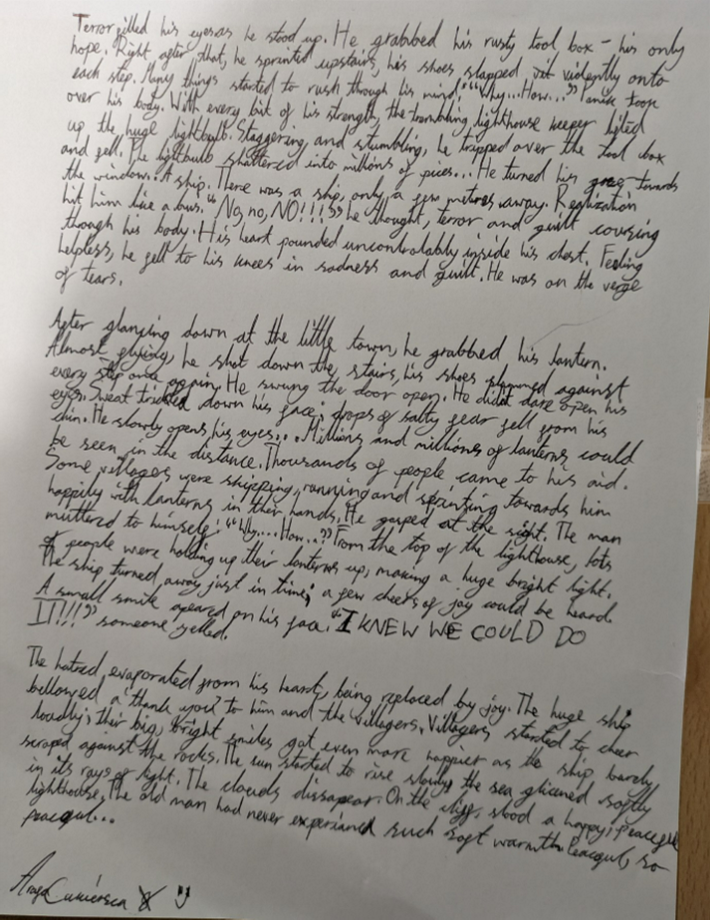 Terror filled his eyes as he stood up. He grabbed his rusty tool box - his only
hope. Right after that, he sprinted upstairs, his shoes slapped violently onto
each step. Many things started to rush through his mind. "Why...How..." Panic took
over his body. With every bit of his strength, the trembling lighthouse keeper lifted
up the huge lightbulb. Staggering and stumbling, he tripped over the tool box
and fell. The lightbulb shattered into millions of pices... He turned his towards
the window. A ship. There was a ship, only a few metres away. Realization
hit him like a bus. "No, no, NO!!!" he thought, terror and guilt coursing
though his body. His heart pounded uncontrolably inside his chest. Feeling
helpless, he fell to his knees in sadness and guilt. He was on the verge
of tears.
After glancing down at the little town, he grabbed his lantern.
Almost flying, he shot down the stairs, his shoes slammed against
every step once again. He swung the door open. He didn't dare open his
eyes. Sweat trickled down his face; drops of salty fear fell from his
chin. He slowly opens his eyes... Millions and millions of lanterns could
be seen in the distance. Thousands of people came to his aid.
Some villagers were skipping, running and sprinting towards him
happily with lanterns in their hands. He gasped at the sight. The man
muttered to himself: "Why....How..?" From the top of the lighthouse, lots
of people were holding up their lanterns up, making a huge bright light.
The ship turned away just in time; a few cheers of joy could be heard.
A small smile apeared on his face. "I KNEW WE COULD DO
IT!!!" someone yelled.
The hatred evaporated from his heart, being replaced by joy. The huge ship
bellowed a 'thank you' to him and the villagers. Villagers started to cheer
loudly; their big, bright smiles got even more happier as the ship barely
scraped against the rocks. The sun started to rise slowly, the sea glistened softly
in its rays of light. The clouds dissapear. On the cliff, stood a happy, peaceful
lighthouse. The old man had never experianced such soft warmth. Peacful, so
peacful...